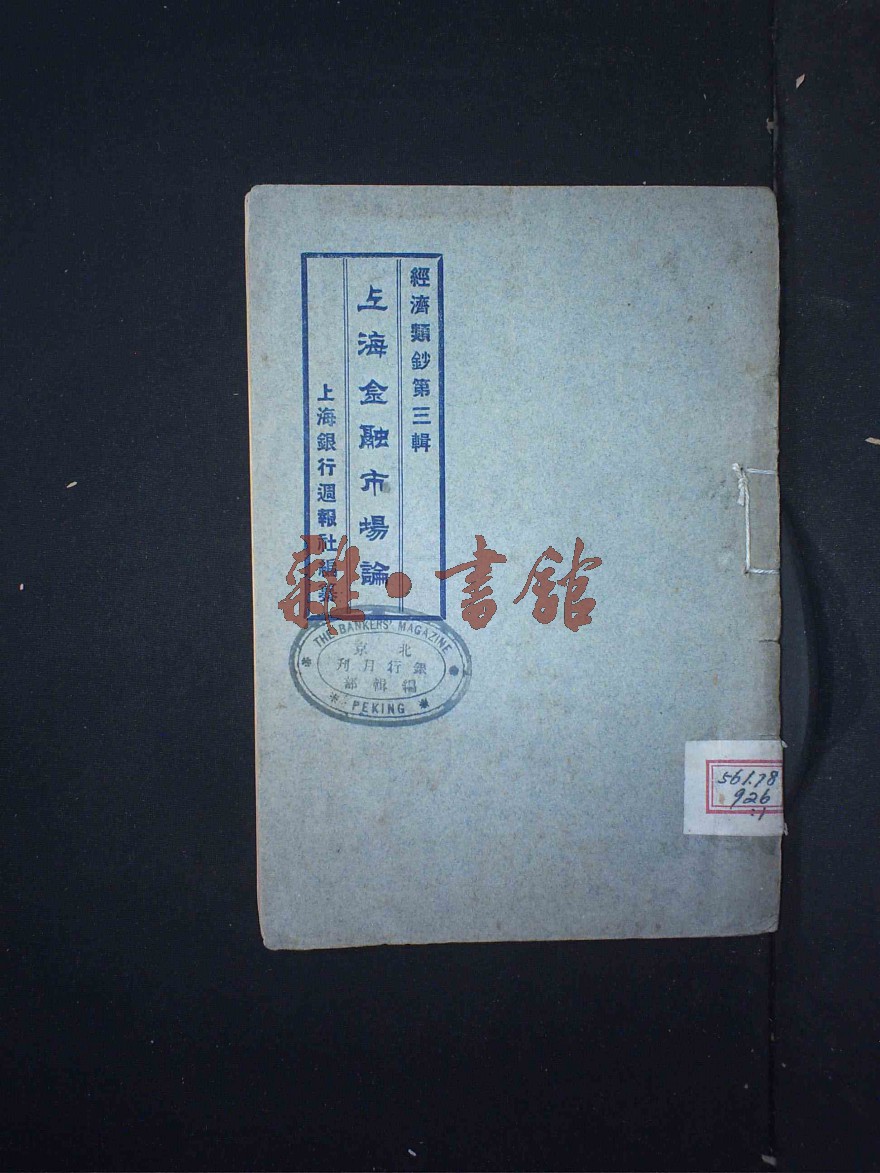 經濟類鈔第三輯
上海金融市場論
上海銀行週報社編纂
雜·書館
THE BANKERS' MAGAZINE
北京
銀行月刊
編輯部
PEKING
561.78
926
:1